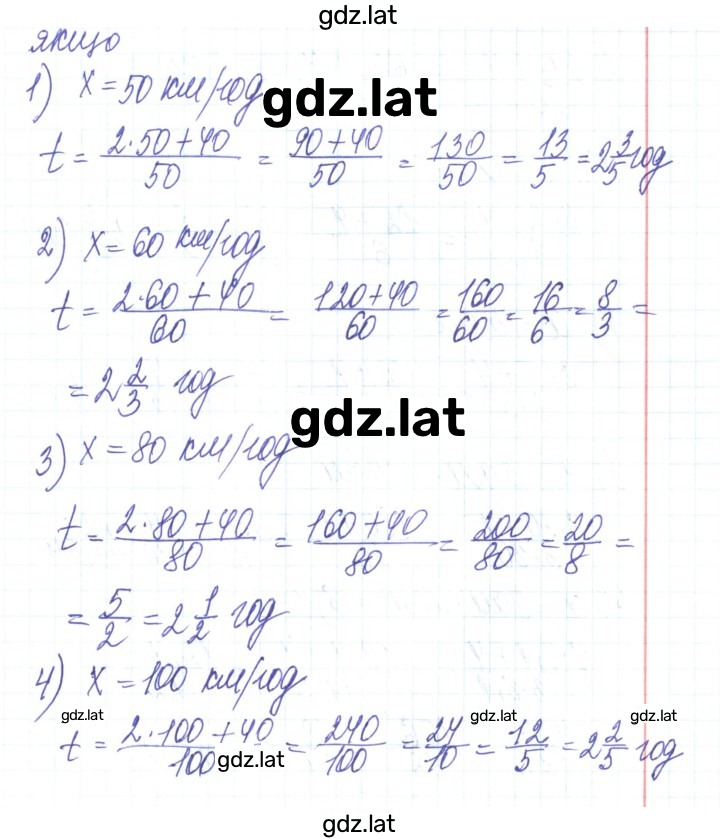 gdz.lat
якщо
1) x = 50 км/год
gdz.lat
t = \frac{2·50+40}{50} = \frac{90+40}{50} = \frac{130}{50} = \frac{13}{5} = 2\frac{3}{5} год
2) x = 60 км/год
t = \frac{2·60+40}{60} = \frac{120+40}{60} = \frac{160}{60} = \frac{16}{6} = \frac{8}{3} =
= 2\frac{2}{3} год
gdz.lat
3) x = 80 км/год
t = \frac{2·80+40}{80} = \frac{160+40}{80} = \frac{200}{80} = \frac{20}{8} =
= \frac{5}{2} = 2\frac{1}{2} год
4) x = 100 км/год
gdz.lat gdz.lat gdz.lat
t = \frac{2·100+40}{100} = \frac{240}{100} = \frac{24}{10} = \frac{12}{5} = 2\frac{2}{5} год
gdz.lat
gdz.lat